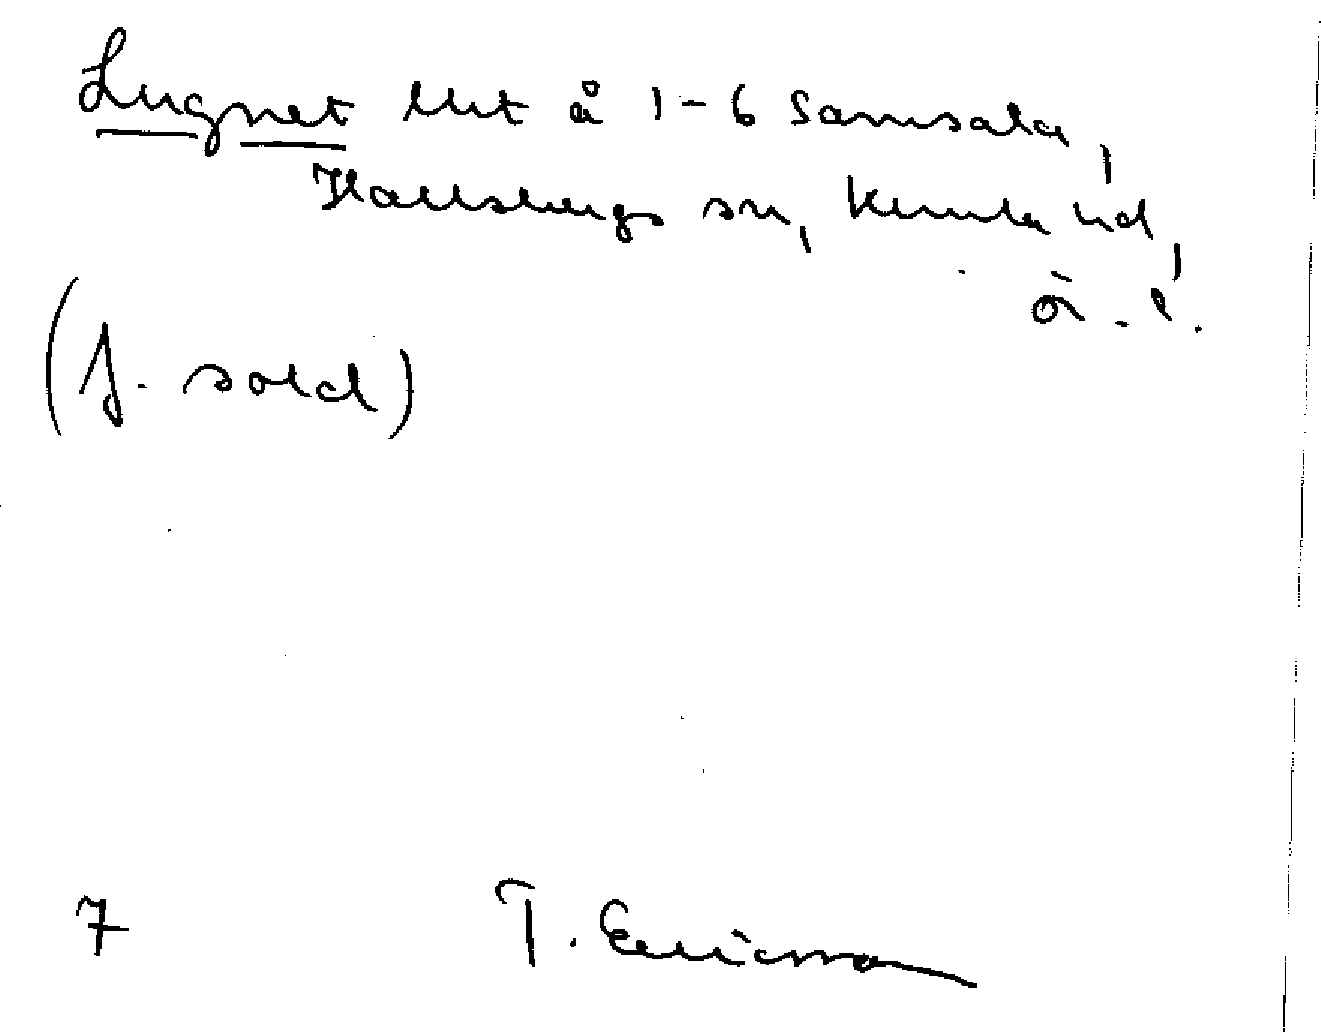 Lugnet lht å 1-6 Samsala,
Hallsbergs sn, Kumla hd,
ö. l.
(f. sold)
7 T. Ericsson